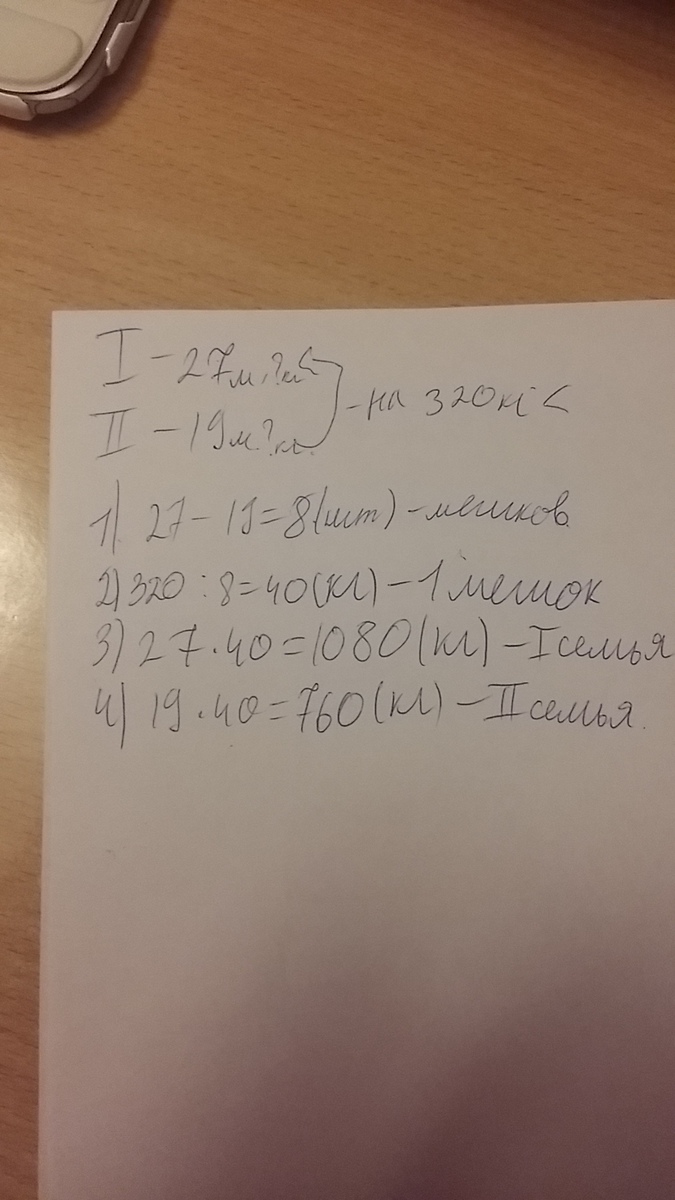 I - 27м. ?кг <
II - 19м ?кг. - на 320кг <
1) 27 - 19 = 8 (шт) - мешков
2) 320 : 8 = 40 (кг) - 1 мешок
3) 27 · 40 = 1080 (кг) - I семья
4) 19 · 40 = 760 (кг) - II семья.